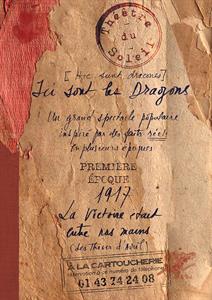 Théâtre du Soleil
[Hic sunt dracones]
Ici sont les Dragons
Un grand spectacle populaire
inspiré par des faits réels
en plusieurs époques
PREMIÈRE
ÉPOQUE
1917
La Victoire était
entre nos mains
(Les Thèses d'Avril)
À LA CARTOUCHERIE
numéro de téléphone
01 43 74 24 08